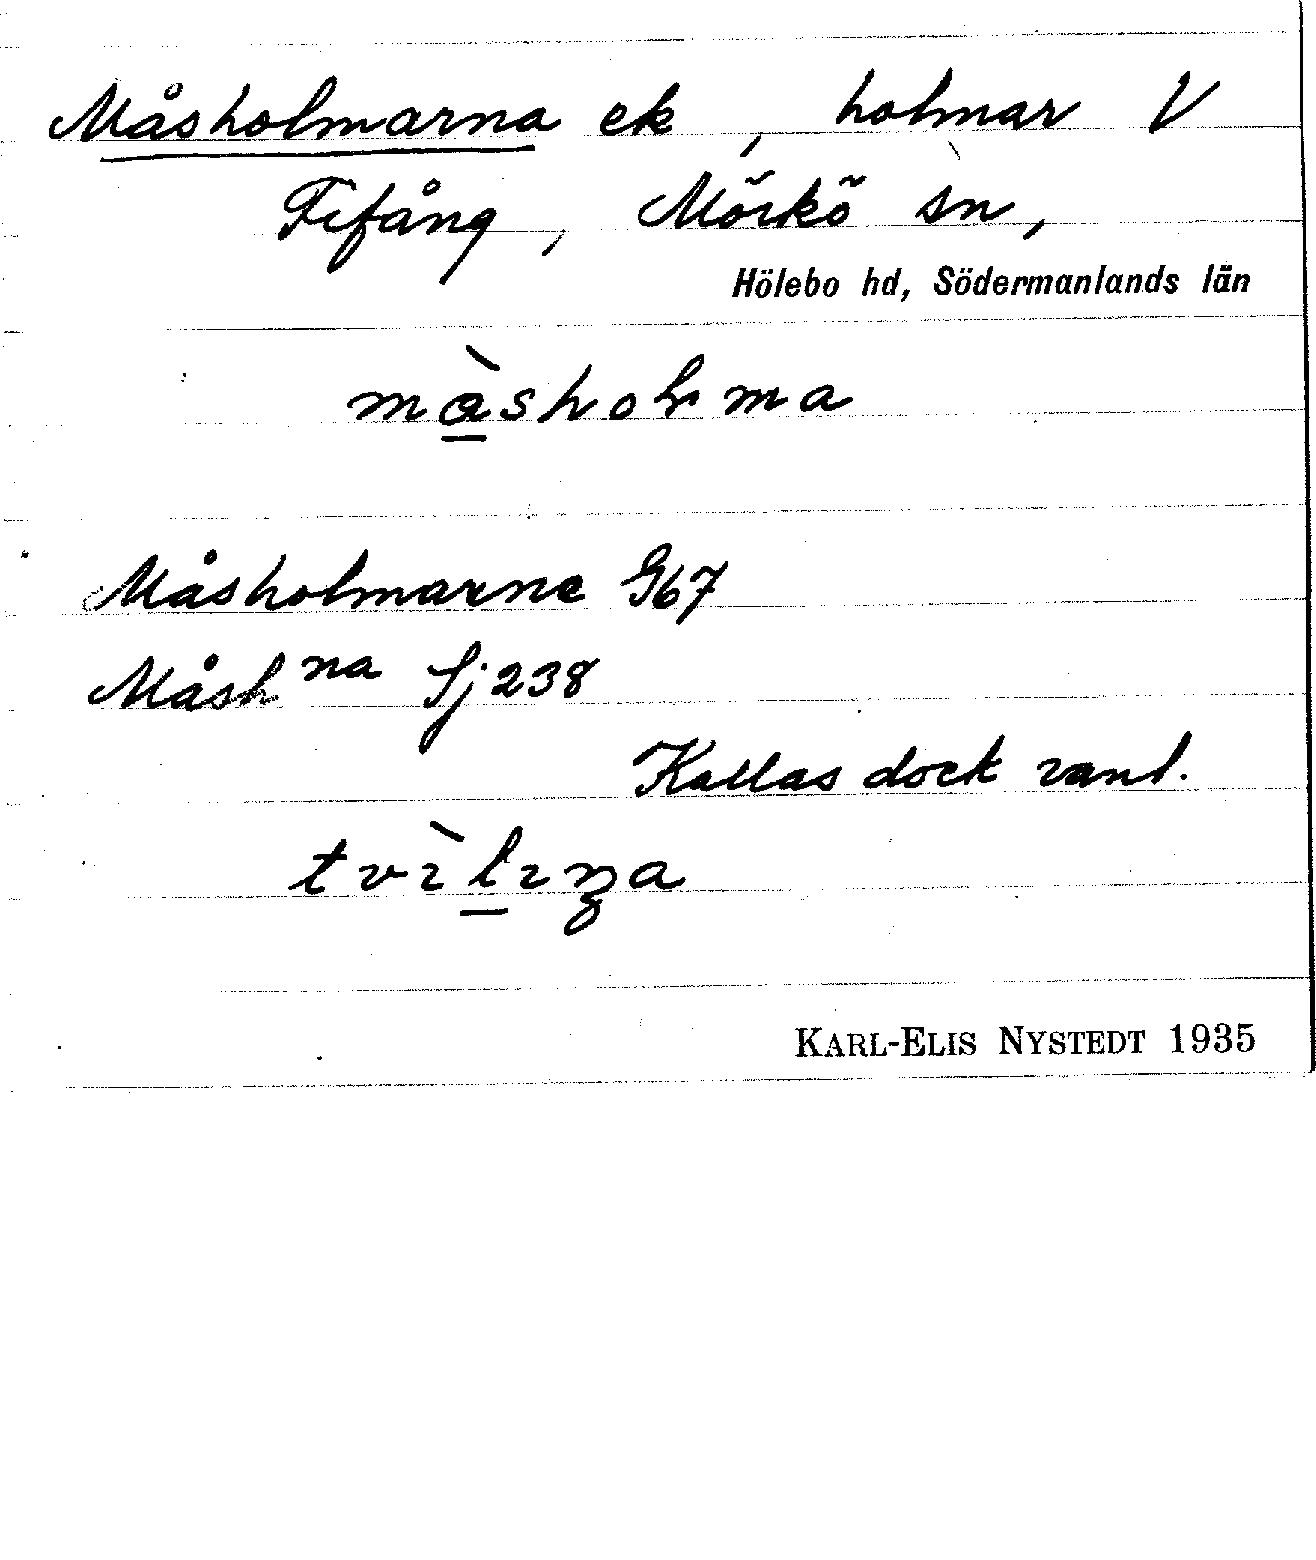 Måsholmarna ek, holmar V
Fifång, Mörkö sn,
Hölebo hd, Södermanlands län
Måsholmarne G67
Måsh na Sj 238
Kallas dock vanl.
KARL-ELIS NYSTEDT 1935